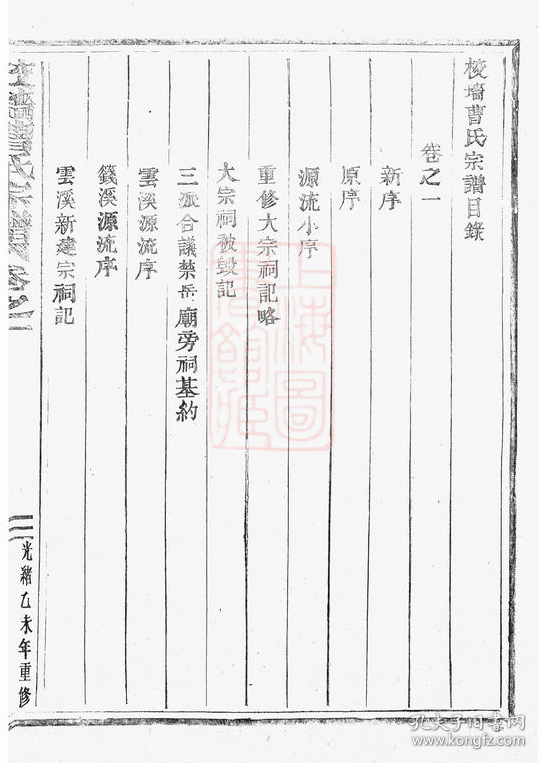 梭墻曹氏宗譜目錄
卷之一
新序
原序
源流小序
重修大宗祠記略
大宗祠被毀記
三派合議禁岳廟旁祠基約
雲溪源流序
籛溪源流序
雲溪新建宗祠記
曹氏宗譜卷之一
光緒乙未年重修
上海圖書館藏
孔夫子旧书网
www.kongfz.com